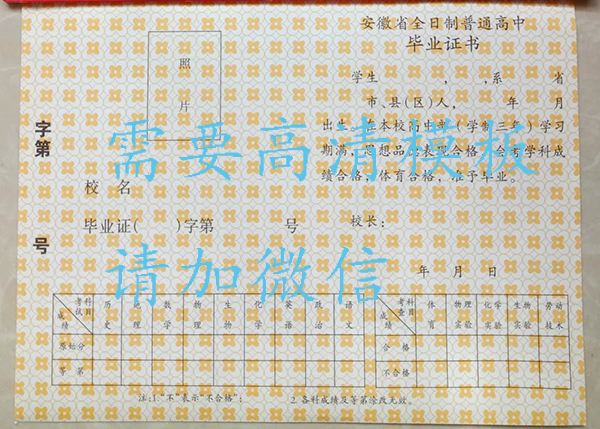 安徽省全日制普通高中
毕业证书
照
片
学生 , ,系 省
市、县(区)人, 年 月
出生。在本校高中部(学制三年)学习
期满,思想品德表现合格,会考学科成
绩合格,体育合格,准予毕业。
字第
号
校 名
毕业证( )字第 号
校长:
年 月 日
需要高清模板
请加微信
考试 科目 成绩 历史 地理 数学 物理 生物 化学 英语 政治 语文
原始分
等 第
考查 科目 成绩 体育 物理实验 化学实验 生物实验 劳动技术
合 格
不合格
注:1."不"表示"不合格"; 2.各科成绩及等第涂改无效。